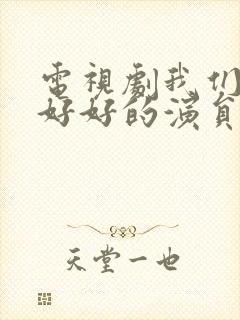 電視劇我们
好好的演員
天堂一也